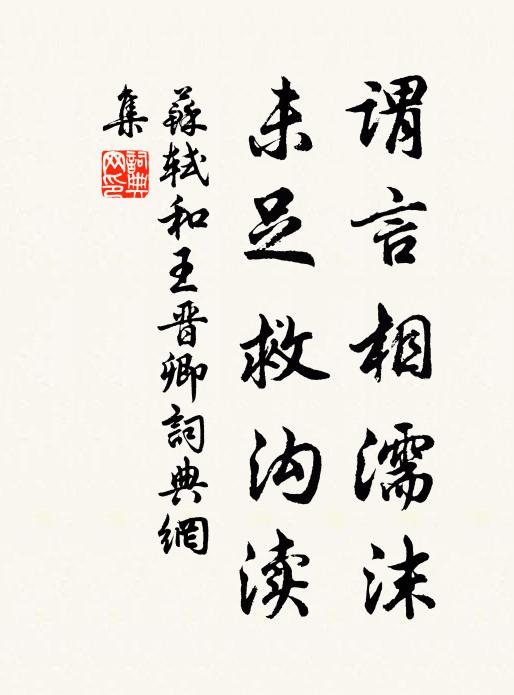 谓言相濡沫
未足救沟渎
蘇軾和王晋卿詞典網
集
詞典网印